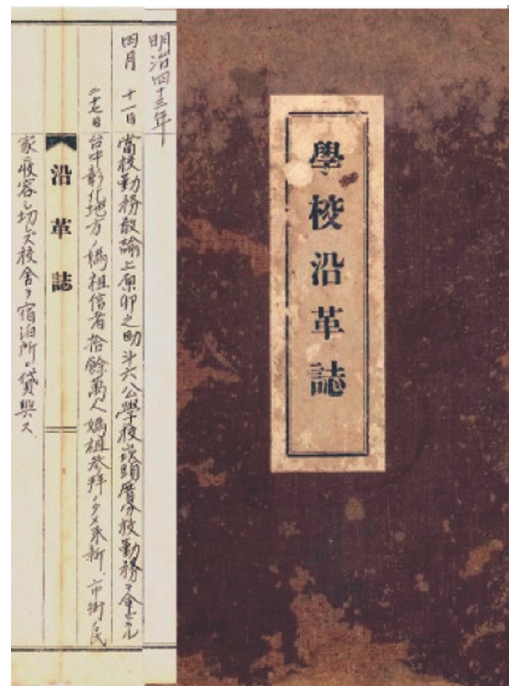 學校沿革誌
明治四十三年
四月 十一日 當校勤務教諭上原卯之助斗六公學校崁頭厝分校勤務ヲ命セラル
二十七日 台中彰化地方ノ媽祖信者拾餘萬人媽祖參拜ノタメ來新、市街ノ民
沿革誌
家ニ收容シ切レズ校舍ヲ宿泊所ニ貸與ス